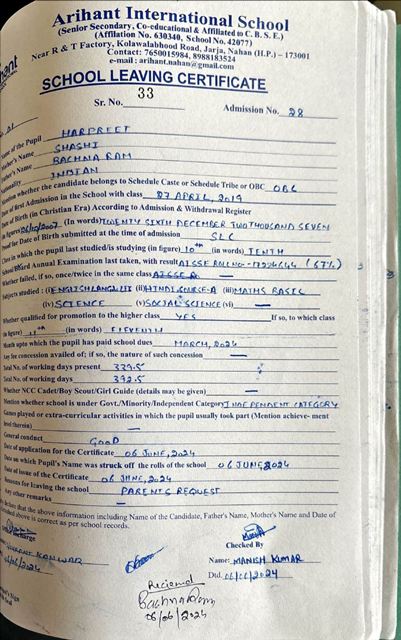 Arihant International School
(Senior Secondary, Co-educational & Affiliated to C. B. S. E.)
(Affilation No. 630340, School No. 42077)
Near R & T Factory, Kolawalabhood Road, Jarja, Nahan (H.P.) – 173001
Contact: 7650015984, 8988183524
e-mail : arihant.nahan@gmail.com
SCHOOL LEAVING CERTIFICATE
Sr. No. 33
Admission No. 28
Name of the Pupil HARPREET
Mother's Name SHASHI
Father's Name BACHNA RAM
Nationality INDIAN
whether the candidate belongs to Schedule Caste or Schedule Tribe or OBC OBC
Date of First Admission in the School with class 27 APRIL, 2019
Date of Birth (in Christian Era) According to Admission & Withdrawal Register
(in figures) 26/12/2007 (In words) TWENTY SIXTH DECEMBER TWO THOUSAND SEVEN
Proof for Date of Birth submitted at the time of admission SLC
Class in which the pupil last studied/is studying (in figure) 10th (in words) TENTH
School/Board Annual Examination last taken, with result AISSE ROLL NO- (67%)
Whether failed, if so, once/twice in the same class —
Subjects studied : (i) ENGLISH LANG/LIT (ii) HINDI COURSE-A (iii) MATHS BASIC
(iv) SCIENCE (v) SOCIAL SCIENCE (vi) —
Whether qualified for promotion to the higher class YES If so, to which class
(in figure) 11th (in words) ELEVENTH
Month upto which the pupil has paid school dues MARCH, 2024
Any fee concession availed of; if so, the nature of such concession —
Total No. of working days present 339.5
Total No. of working days 392.5
Whether NCC Cadet/Boy Scout/Girl Guide (details may be given) —
Mention whether school is under Govt./Minority/Independent Category INDEPENDENT CATEGORY
Games played or extra-curricular activities in which the pupil usually took part (Mention achieve- ment
level therein) —
General conduct GOOD
Date of application for the Certificate 06 JUNE, 2024
Date on which Pupil's Name was struck off the rolls of the school 06 JUNE, 2024
Date of issue of the Certificate 06 JUNE, 2024
Reasons for leaving the school PARENTS REQUEST
Any other remarks —
that the above information including Name of the Candidate, Father's Name, Mother's Name and Date of
above is correct as per school records.
Checked By
KANWAR
Name: MANISH KUMAR
06/06/2024
Dtd. 06/06/2024
Recieved
Bachna Ram
06/06/2024